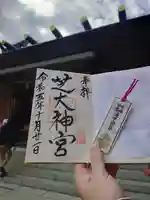 奉拝
芝大神宮
令和五年十月廿一日